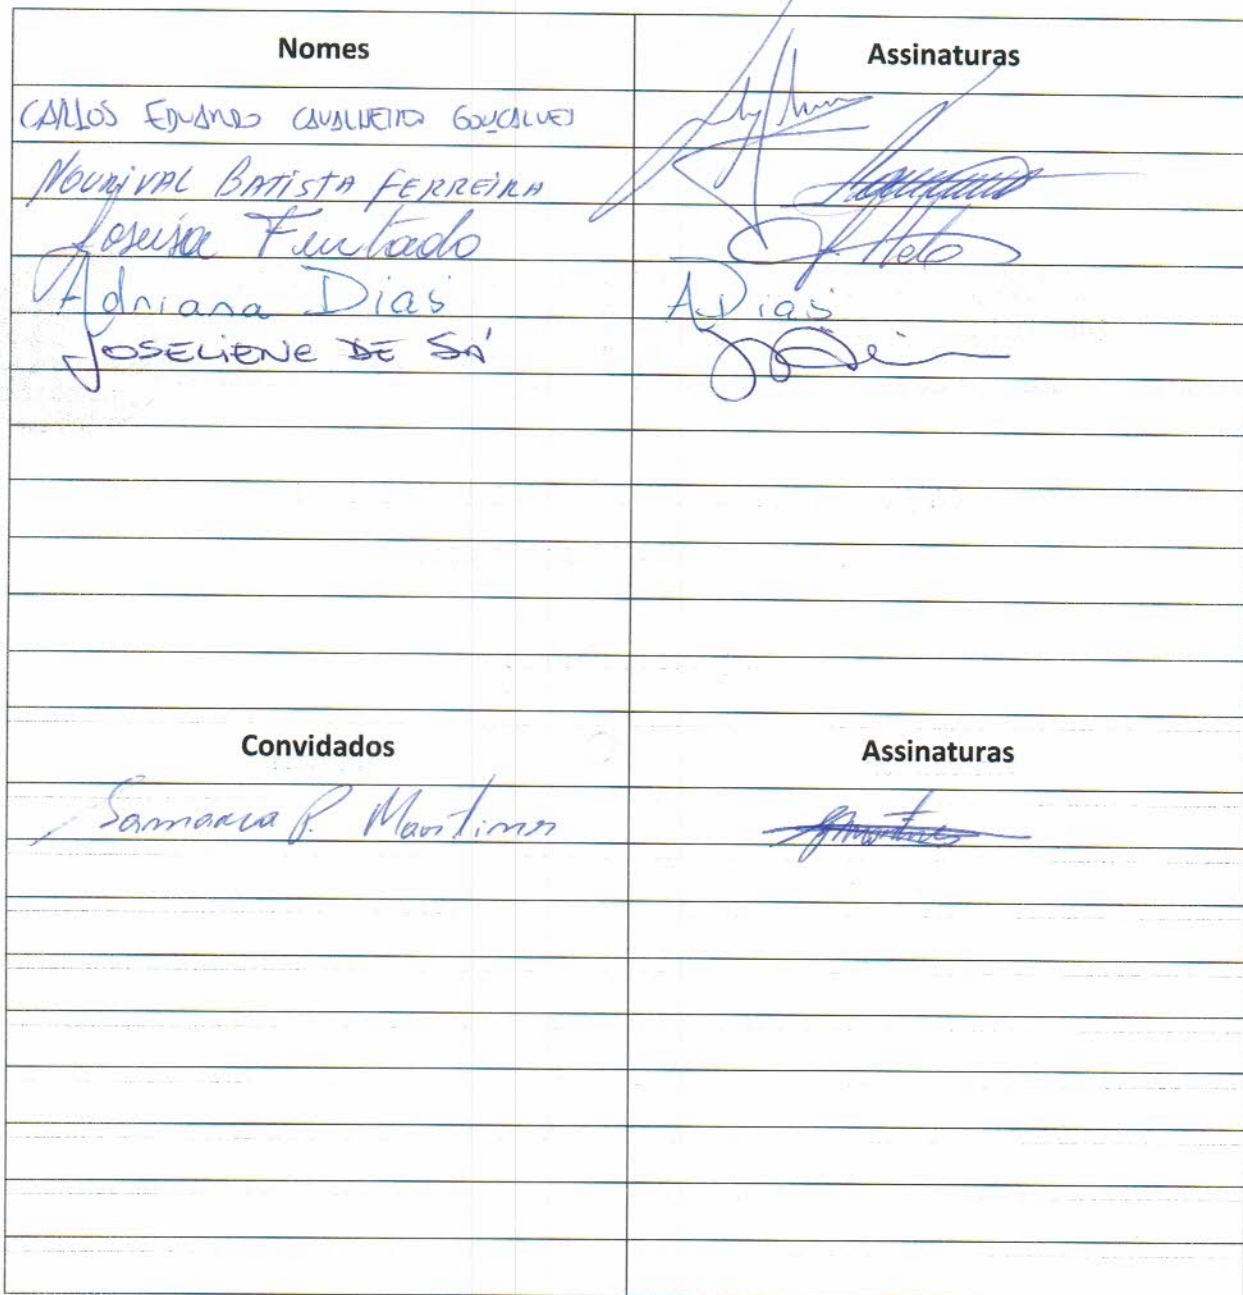 Nomes Assinaturas
CARLOS EDUARDO CAVALHEIRO GONÇALVES
NOURIVAL BATISTA FERREIRA
Furtado
Adriana Dias A Dias
JOSELIENE DE SÁ
Convidados Assinaturas
Samara P. Martines